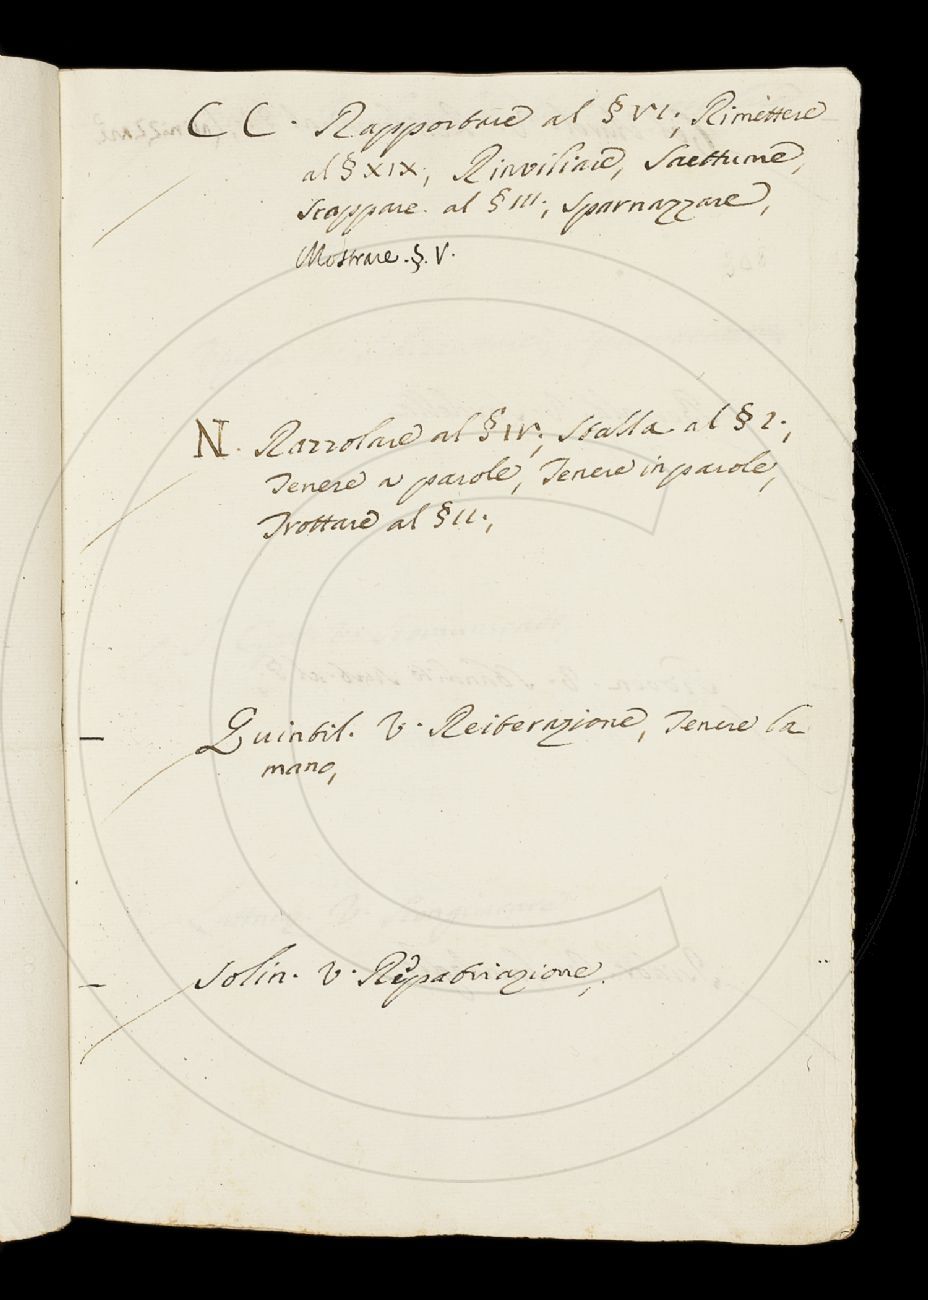 CC. Rapportare al § VI; Rimettere
al § XIX; Rinviliare, Saettume,
Stoppare al § III; Sparnazzare,
Mostrare. §. V.
N. Razzolare al § IV; Stalla al § I.,
Tenere a parole, Tenere in parole,
Trottare al § II.,
Quintil. V. Reiterazione, Tenere la
mano,
Solin. V. Repatriazione,